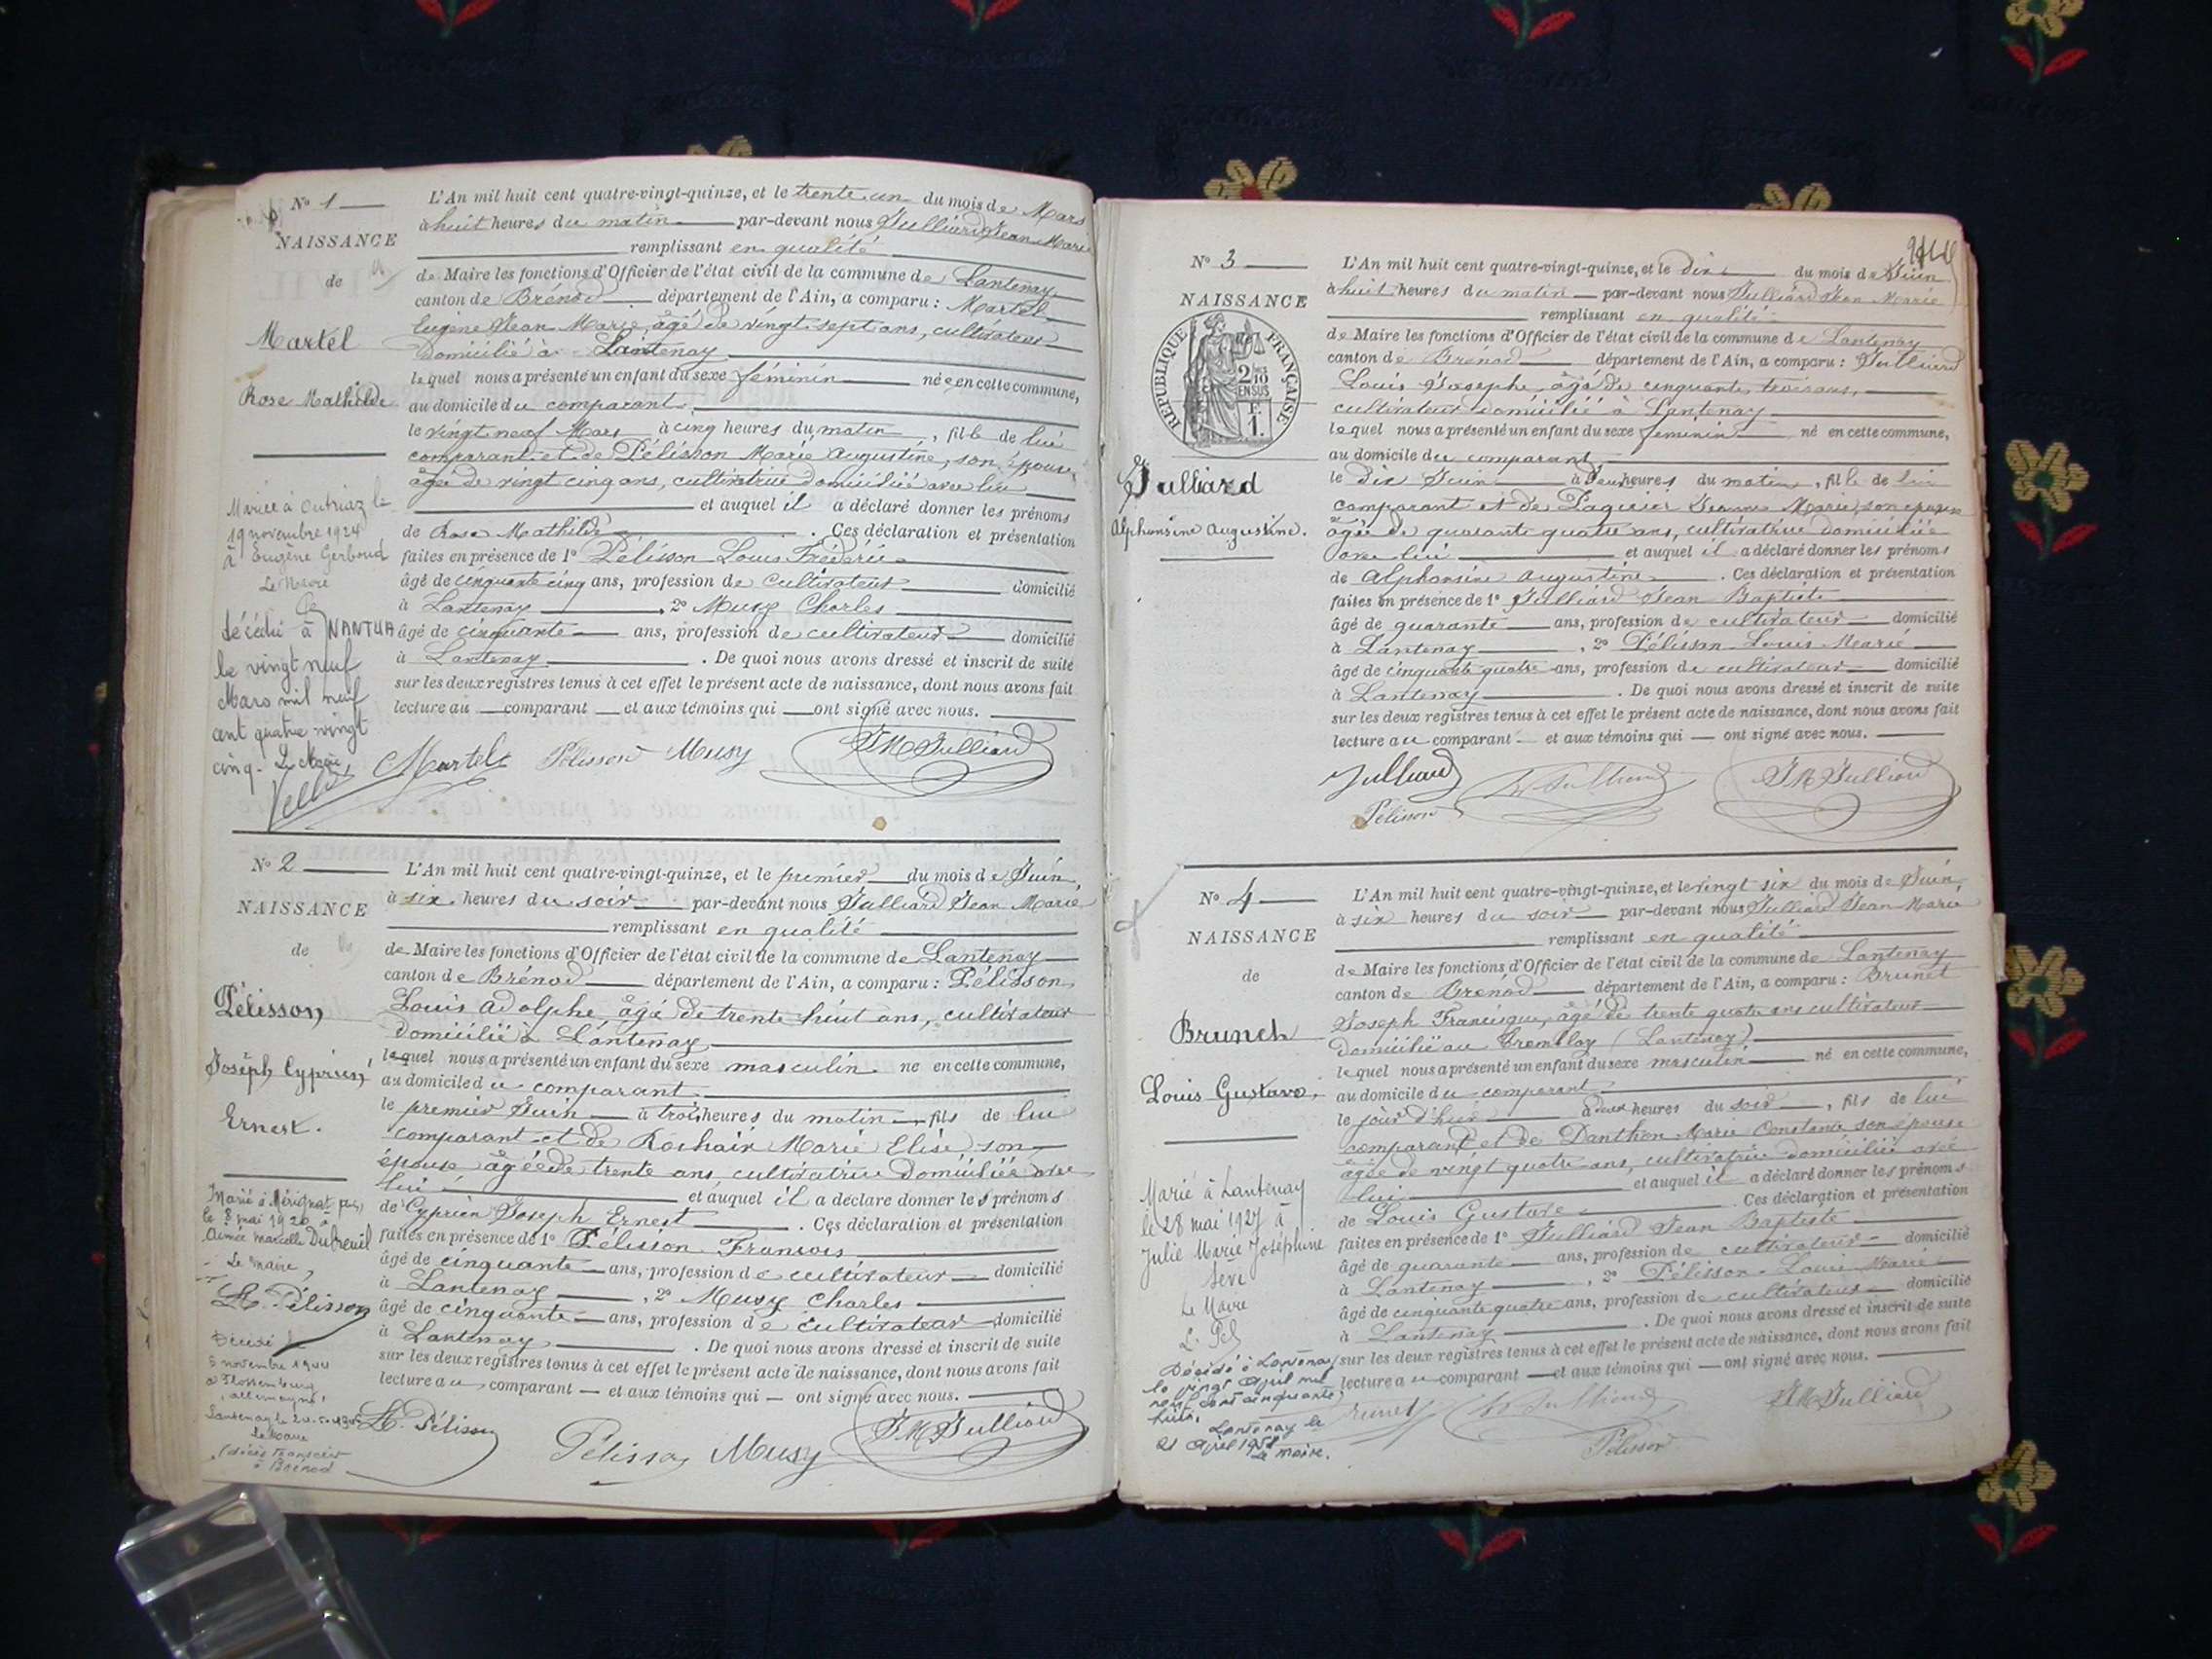 N° 1
NAISSANCE
de
Martel
Rose Mathilde
Mariée à Outriaz le
19 novembre 1924
à Eugène Gerboud
Le Maire
décédée à NANTUA
le vingt neuf
Mars mil neuf
cent quatre vingt
cinq. Le Maire,
L'An mil huit cent quatre-vingt-quinze, et le trente un du mois de Mars
à huit heures du matin par-devant nous Julliard Jean Marie
remplissant en qualité
de Maire les fonctions d'Officier de l'état civil de la commune de Lantenay
canton de Brénod département de l'Ain, a comparu : Martel
Eugène Jean Marie, âgé de vingt sept ans, cultivateur
domicilié à Lantenay
lequel nous a présenté un enfant du sexe féminin née en cette commune,
au domicile du comparant,
le vingt neuf Mars à cinq heures du matin, fille de lui
comparant et de Pélisson Marie Augustine, son épouse,
âgée de vingt cinq ans, cultivatrice domiciliée avec lui
et auquel il a déclaré donner les prénoms
de Rose Mathilde. Ces déclaration et présentation
faites en présence de 1° Pélisson Louis Frédéric
âgé de cinquante cinq ans, profession de cultivateur domicilié
à Lantenay, 2° Musy Charles
âgé de cinquante ans, profession de cultivateur domicilié
à Lantenay. De quoi nous avons dressé et inscrit de suite
sur les deux registres tenus à cet effet le présent acte de naissance, dont nous avons fait
lecture au comparant et aux témoins qui ont signé avec nous.
Martel Pélisson Musy JM Julliard
N° 2
NAISSANCE
de
Pélisson
Joseph Cyprien
Ernest.
Marié à Mérignat
le 8 mai 1920 à
Aimée Marcelle Dubreuil
Le Maire,
L. Pélisson
Décédé le
novembre 1944
à Flossenburg
allemagne
Lantenay le
Le Maire
L'An mil huit cent quatre-vingt-quinze, et le premier du mois de Juin,
à six heures du soir par-devant nous Julliard Jean Marie
remplissant en qualité
de Maire les fonctions d'Officier de l'état civil de la commune de Lantenay
canton de Brénod département de l'Ain, a comparu : Pélisson
Louis Adolphe âgé de trente huit ans, cultivateur
domicilié à Lantenay
lequel nous a présenté un enfant du sexe masculin né en cette commune,
au domicile du comparant
le premier Juin à trois heures du matin, fils de lui
comparant et de Rochaix Marie Elise son
épouse âgée de trente ans, cultivatrice domiciliée avec
lui et auquel il a déclaré donner les prénoms
de Cyprien Joseph Ernest. Ces déclaration et présentation
faites en présence de 1° Pélisson François
âgé de cinquante ans, profession de cultivateur domicilié
à Lantenay, 2° Musy Charles
âgé de cinquante ans, profession de cultivateur domicilié
à Lantenay. De quoi nous avons dressé et inscrit de suite
sur les deux registres tenus à cet effet le présent acte de naissance, dont nous avons fait
lecture au comparant et aux témoins qui ont signé avec nous.
L. Pélisson Pélisson Musy JM Julliard
N° 3
NAISSANCE
RÉPUBLIQUE FRANÇAISE
2/10 EN SUS
1 F.
Julliard
Alphonsine Augustine.
L'An mil huit cent quatre-vingt-quinze, et le dix du mois de Juin
à huit heures du matin par-devant nous Julliard Jean Marie
remplissant en qualité
de Maire les fonctions d'Officier de l'état civil de la commune de Lantenay
canton de Brénod département de l'Ain, a comparu : Julliard
Louis Josephe, âgé de cinquante trois ans,
cultivateur domicilié à Lantenay
lequel nous a présenté un enfant du sexe féminin né en cette commune,
au domicile du comparant
le dix Juin à deux heures du matin, fille de lui
comparant et de Jeanne Marie, son épouse
âgée de quarante quatre ans, cultivatrice domiciliée
avec lui et auquel il a déclaré donner les prénoms
de Alphonsine Augustine. Ces déclaration et présentation
faites en présence de 1° Julliard Jean Baptiste
âgé de quarante ans, profession de cultivateur domicilié
à Lantenay, 2° Pélisson Louis Marie
âgé de cinquante quatre ans, profession de cultivateur domicilié
à Lantenay. De quoi nous avons dressé et inscrit de suite
sur les deux registres tenus à cet effet le présent acte de naissance, dont nous avons fait
lecture au comparant et aux témoins qui ont signé avec nous.
Julliard Julliard JM Julliard
Pélisson
N° 4
NAISSANCE
de
Brunet
Louis Gustave.
Marié à Lantenay
le 28 mai 1927 à
Julie Marie Joséphine
Sève
Le Maire
Décédé à Lantenay
le vingt Avril mil
neuf cent cinquante
huit.
Lantenay le
21 Avril 1958
Le Maire.
L'An mil huit cent quatre-vingt-quinze, et le vingt six du mois de Juin,
à six heures du soir par-devant nous Julliard Jean Marie
remplissant en qualité
de Maire les fonctions d'Officier de l'état civil de la commune de Lantenay
canton de Brénod département de l'Ain, a comparu : Brunet
Joseph Francisque, âgé de trente quatre ans cultivateur
domicilié au Tremblay (Lantenay)
lequel nous a présenté un enfant du sexe masculin né en cette commune,
au domicile du comparant
le jour d'hui à deux heures du soir, fils de lui
comparant et de Danthon Marie Constance son épouse
âgée de vingt quatre ans, cultivatrice domiciliée avec
lui et auquel il a déclaré donner les prénoms
de Louis Gustave. Ces déclaration et présentation
faites en présence de 1° Julliard Jean Baptiste
âgé de quarante ans, profession de cultivateur domicilié
à Lantenay, 2° Pélisson Louis Marie
âgé de cinquante quatre ans, profession de cultivateur domicilié
à Lantenay. De quoi nous avons dressé et inscrit de suite
sur les deux registres tenus à cet effet le présent acte de naissance, dont nous avons fait
lecture au comparant et aux témoins qui ont signé avec nous.
Brunet Julliard JM Julliard
Pélisson